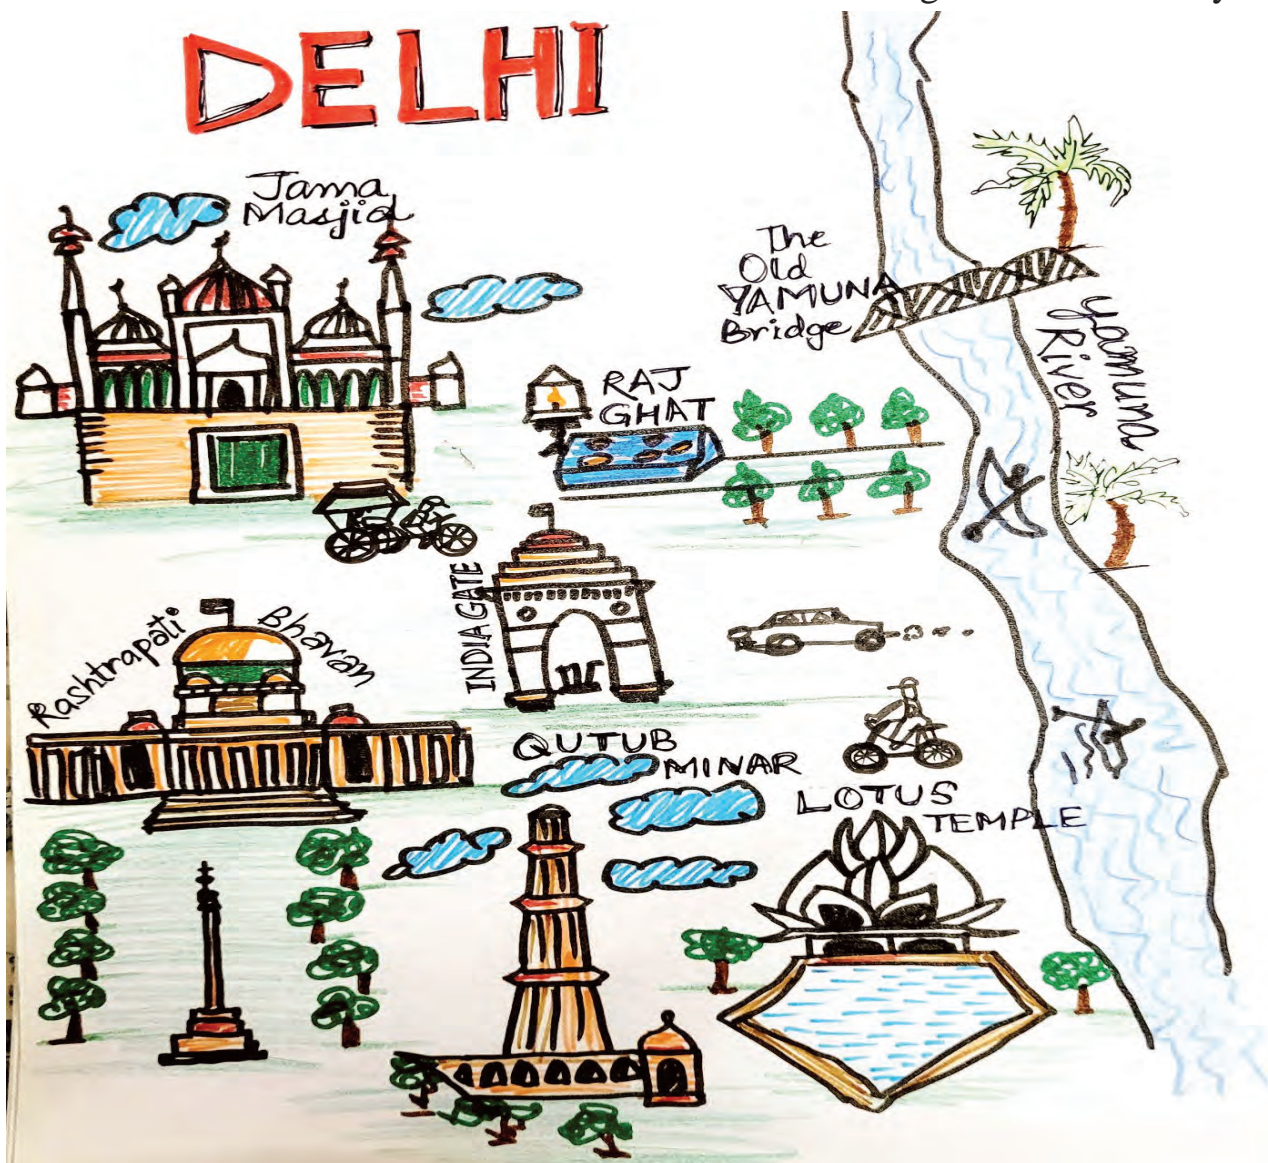 DELHI
Jama
Masjid
The
Old
YAMUNA
Bridge
Yamuna
River
RAJ
GHAT
INDIA GATE
Rashtrapati Bhavan
QUTUB
MINAR
LOTUS
TEMPLE